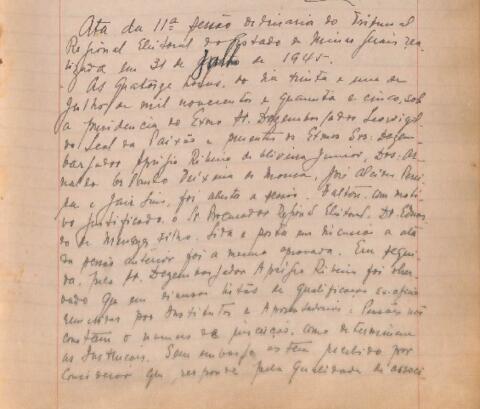 Ata da 11ª sessão Ordinaria do Tribunal
Regional Eleitoral do Estado de Minas Gerais, rea-
lizada em 31 de Julho de 1945.
As quatorze horas, do dia trinta e um de
Julho de mil novecentos e quarenta e cinco, sob
a presidencia do Exmo Sr. Dezembargador Leovigil-
do Leal da Paixão e presentes os Exmos Srs. Dezem-
bargador Aprigio Ribeiro de Oliveira Junior, Drs. Ar-
naldo Teixeira de Moura, José Alcides Perei-
ra e Jair Lins, foi aberta a sessão. Faltou, com moti-
vo justificado, o Sr. Procurador Regional Eleitoral, Dr. Edmun-
do de Menezes Filho. Lida e posta em discussão a ata
da sessão anterior foi a mesma aprovada. Em segui-
da, pelo Sr. Dezembargador Aprigio Ribeiro foi obser-
vado que em diversas listas de qualificação
remetidas por Institutos e Aposentadoria e Pensões não
constam o numero de, como determinam
as Instruções. Sem embargo as tem recebido por
considerar que responde pela qualidade de associ